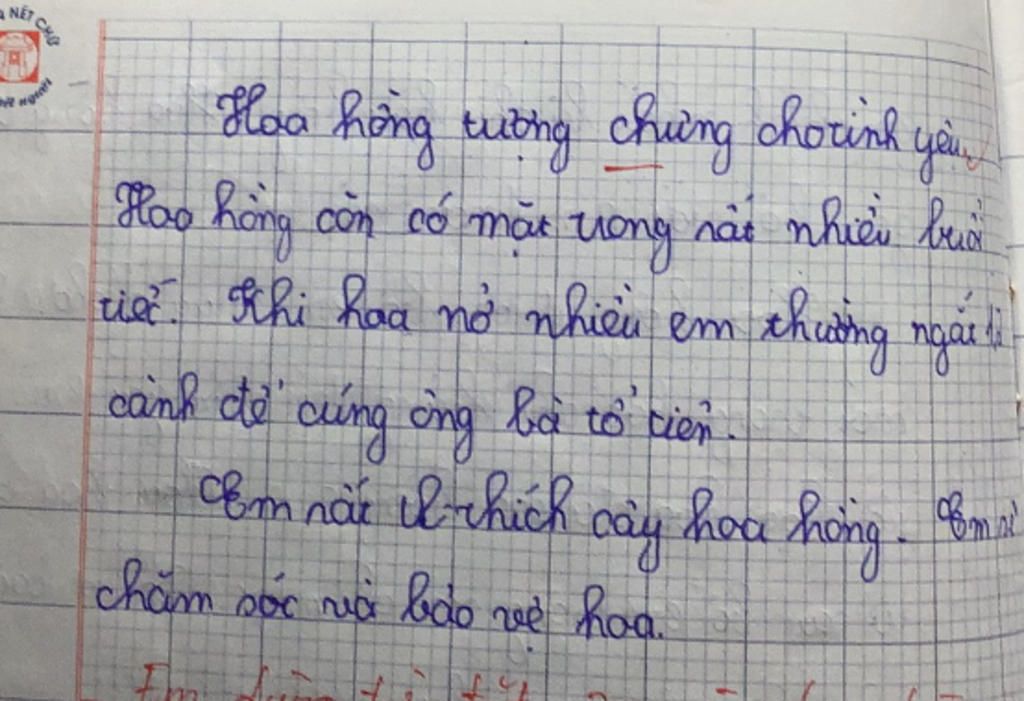 NÉT CHỮ
Hoa hồng tượng chưng cho tình yêu.
Hoa hồng còn có mặt trong rất nhiều buổi
tiệc. Khi hoa nở nhiều em thường ngắt
cành để cúng ông bà tổ tiên.
Em rất thích cây hoa hồng. Em
chăm sóc và bảo vệ hoa.
Em